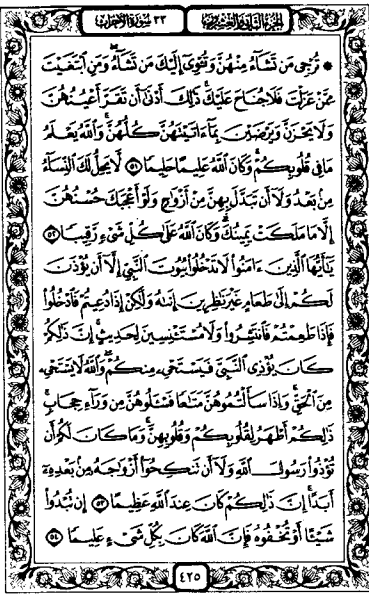 الجزء الثاني والعشرون ٣٣ سورة الأحزاب
۞ تُرْجِى مَن تَشَآءُ مِنْهُنَّ وَتُـْٔوِىٓ إِلَيْكَ مَن تَشَآءُ وَمَنِ ٱبْتَغَيْتَ
مِمَّنْ عَزَلْتَ فَلَا جُنَاحَ عَلَيْكَ ذَٰلِكَ أَدْنَىٰٓ أَن تَقَرَّ أَعْيُنُهُنَّ
وَلَا يَحْزَنَّ وَيَرْضَيْنَ بِمَآ ءَاتَيْتَهُنَّ كُلُّهُنَّ وَٱللَّهُ يَعْلَمُ
مَا فِى قُلُوبِكُمْ وَكَانَ ٱللَّهُ عَلِيمًا حَلِيمًا ٥١ لَّا يَحِلُّ لَكَ ٱلنِّسَآءُ
مِنۢ بَعْدُ وَلَآ أَن تَبَدَّلَ بِهِنَّ مِنْ أَزْوَٰجٍ وَلَوْ أَعْجَبَكَ حُسْنُهُنَّ
إِلَّا مَا مَلَكَتْ يَمِينُكَ وَكَانَ ٱللَّهُ عَلَىٰ كُلِّ شَىْءٍ رَّقِيبًا ٥٢
يَٰٓأَيُّهَا ٱلَّذِينَ ءَامَنُوا۟ لَا تَدْخُلُوا۟ بُيُوتَ ٱلنَّبِىِّ إِلَّآ أَن يُؤْذَنَ
لَكُمْ إِلَىٰ طَعَامٍ غَيْرَ نَٰظِرِينَ إِنَىٰهُ وَلَٰكِنْ إِذَا دُعِيتُمْ فَٱدْخُلُوا۟
فَإِذَا طَعِمْتُمْ فَٱنتَشِرُوا۟ وَلَا مُسْتَـْٔنِسِينَ لِحَدِيثٍ إِنَّ ذَٰلِكُمْ
كَانَ يُؤْذِى ٱلنَّبِىَّ فَيَسْتَحْىِۦ مِنكُمْ وَٱللَّهُ لَا يَسْتَحْىِۦ
مِنَ ٱلْحَقِّ وَإِذَا سَأَلْتُمُوهُنَّ مَتَٰعًا فَسْـَٔلُوهُنَّ مِن وَرَآءِ حِجَابٍ
ذَٰلِكُمْ أَطْهَرُ لِقُلُوبِكُمْ وَقُلُوبِهِنَّ وَمَا كَانَ لَكُمْ أَن
تُؤْذُوا۟ رَسُولَ ٱللَّهِ وَلَآ أَن تَنكِحُوٓا۟ أَزْوَٰجَهُۥ مِنۢ بَعْدِهِۦٓ
أَبَدًا إِنَّ ذَٰلِكُمْ كَانَ عِندَ ٱللَّهِ عَظِيمًا ٥٣ إِن تُبْدُوا۟
شَيْـًٔا أَوْ تُخْفُوهُ فَإِنَّ ٱللَّهَ كَانَ بِكُلِّ شَىْءٍ عَلِيمًا ٥٤
٤٢٥